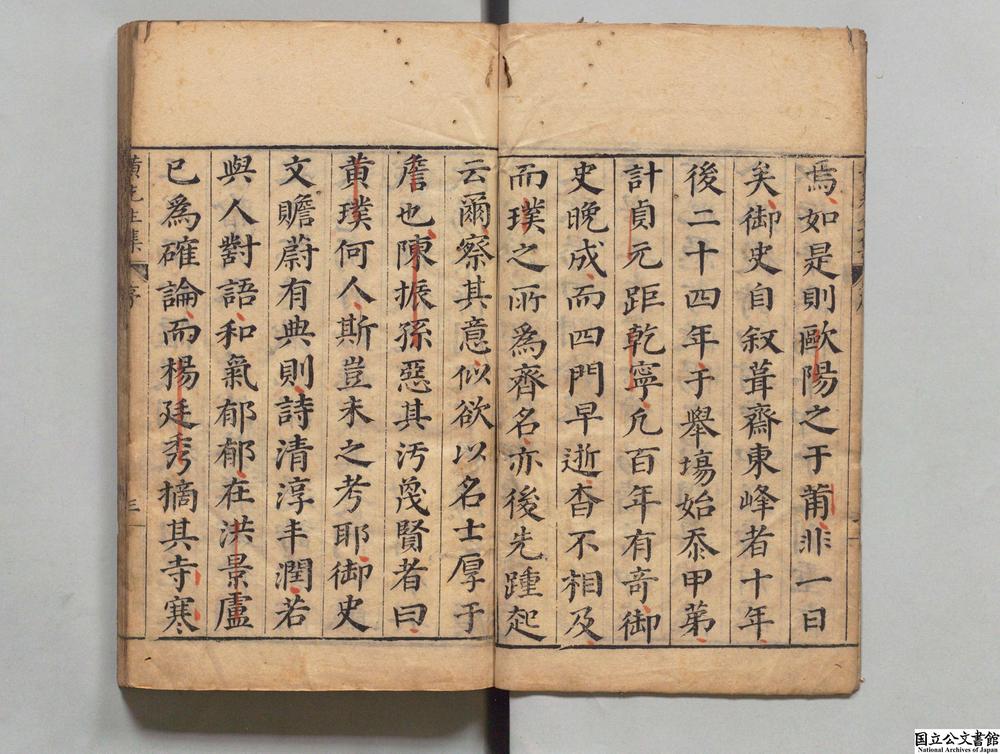 焉如是則歐陽之于莆非一日
矣御史自叙葺齋東峰者十年
後二十四年于舉塲始忝甲第
計貞元距乾寧凢百年有奇御
史晚成而四門早逝杳不相及
而璞之所爲齊名亦後先踵起
云爾察其意似欲以名士厚于
詹也陳振孫惡其汚衊賢者曰
黄璞何人斯豈未之考耶御史
文贍蔚有典則詩清淳丰潤若
與人對語和氣郁郁在洪景盧
已爲確論而楊廷秀摘其寺寒
黄先生集
序
三
国立公文書館
National Archives of Japan